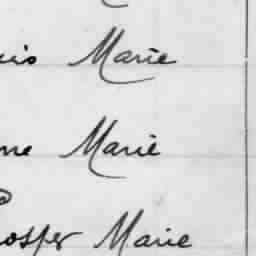 uis Marie
ne Marie
rosper Marie